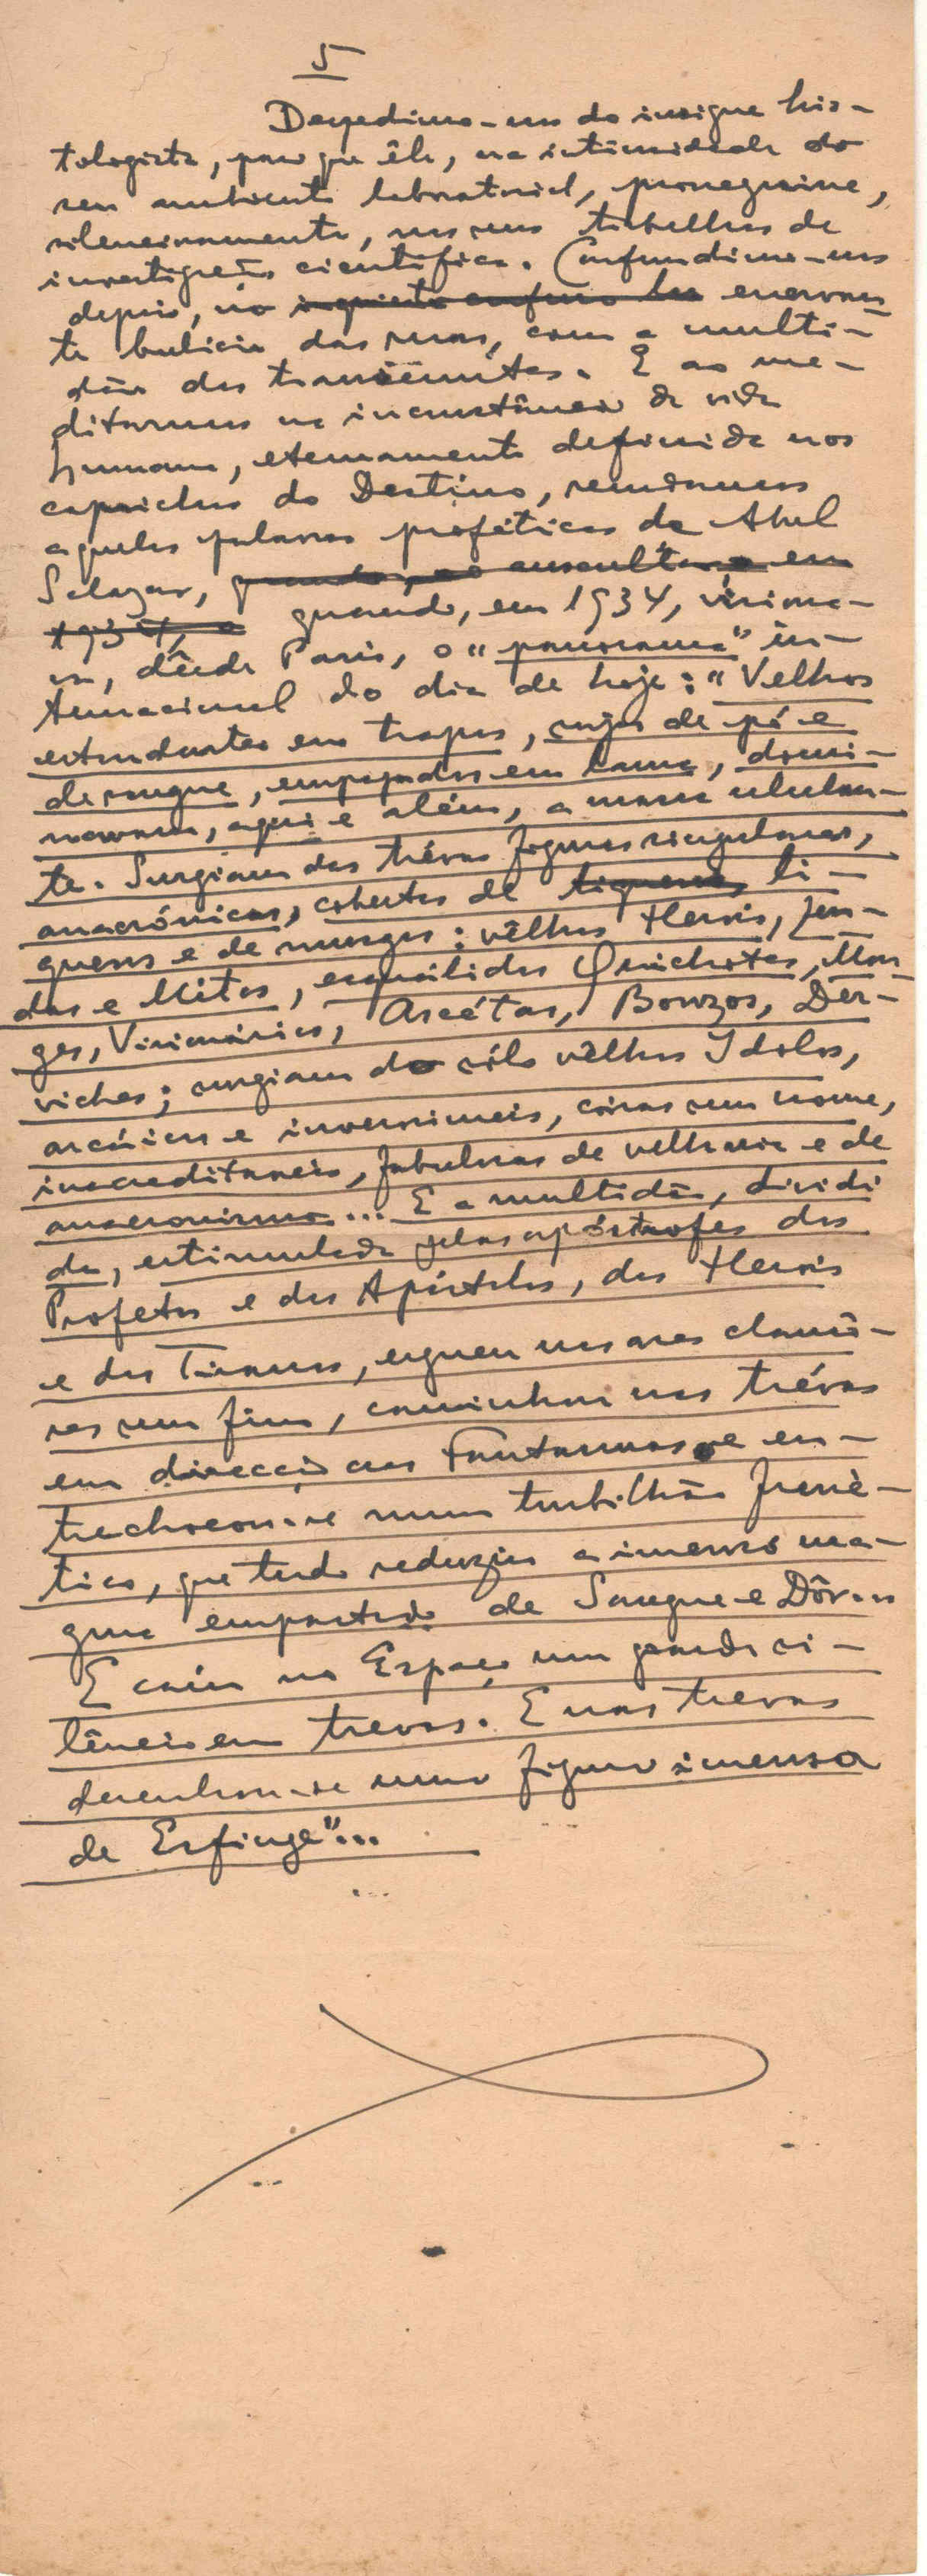 5
Despedimo-nos do insigne his-
tologista, para que êle, na intimidade do
seu ambiente laboratorial, prosseguisse,
silenciosamente, nos seus trabalhos de
investigação científica. Confundimo-nos
depois, no inquieto confuso enervan-
te bulício das ruas, com a multi-
dão dos transeuntes. E ao me-
ditarmos na inconstância da vida
humana, eternamente definida nos
caprichos do Destino, recordamos
aquelas palavras proféticas de Abel
Salazar, quando, ao auscultar, em
1934, o quando, em 1934, visiona-
va, dêsde Paris, o "panorama" in-
ternacional do dia de hoje: "Velhos
estandartes em trapos, sujos de pó e
de sangue, empapados em lama, domi-
navam, aqui e além, a massa ululan-
te. Surgiam das trévas figuras singulares,
anacrónicas, cobertas de liquens, li-
quens e de musgos: vêlhos Herois, Len-
das e Mitos, esquálidos Quichotes, Mon-
ges, Visionários, Ascétas, Bonzos, Der-
viches; surgiam do sólo vêlhos Idolos,
arcáicos e inverosimeis, coisas sem nome,
inacreditaveis, fabulosas de velharia e de
anacronismo... E a multidão, dividi
da, estimulada pelas apóstrofes dos
Profetas e dos Apóstolos, dos Herois
e dos Tiranos, ergueu nos ares clamô-
res sem fim, caminhou nas trévas
em direcção aos Fantasmas e en-
trechocou-se num turbilhão frené-
tico, que tudo reduziu a imenso ma-
gma empastado de Sangue e Dôr...
E caíu no Espaço um grande si-
lêncio em trevas. E nas trevas
desenhou-se uma figura imensa
de Esfinge"...